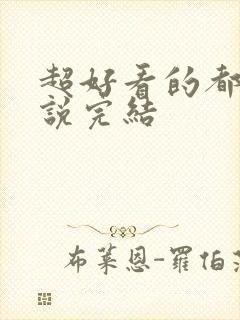 超好看的都
說完結
布萊恩-羅伯